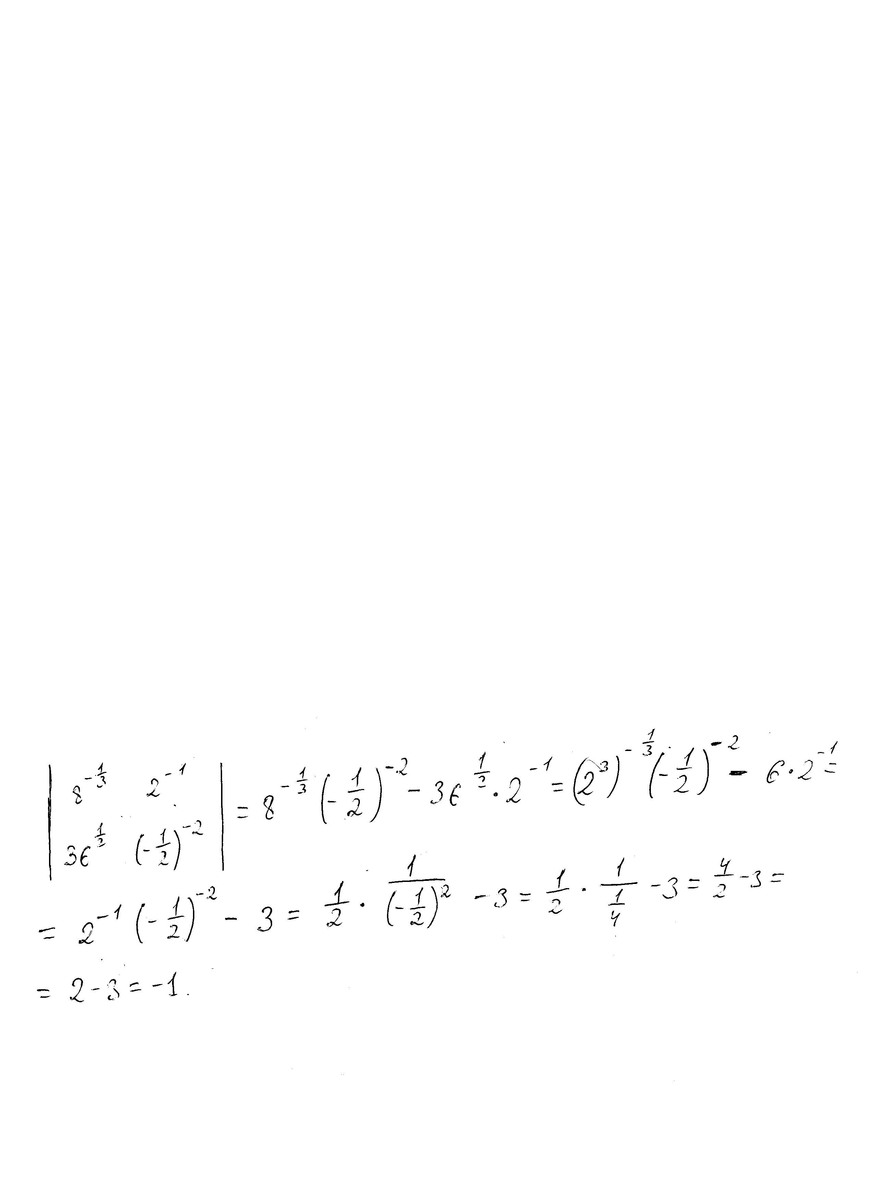 | 8^{-\frac{1}{3}} 2^{-1} |
| 36^{\frac{1}{2}} (-\frac{1}{2})^{-2} | = 8^{-\frac{1}{3}} (-\frac{1}{2})^{-2} - 36^{\frac{1}{2}} · 2^{-1} = (2^3)^{-\frac{1}{3}} (-\frac{1}{2})^{-2} - 6 · 2^{-1} =
= 2^{-1} (-\frac{1}{2})^{-2} - 3 = \frac{1}{2} · \frac{1}{(-\frac{1}{2})^2} - 3 = \frac{1}{2} · \frac{1}{\frac{1}{4}} - 3 = \frac{4}{2} - 3 =
= 2 - 3 = -1.